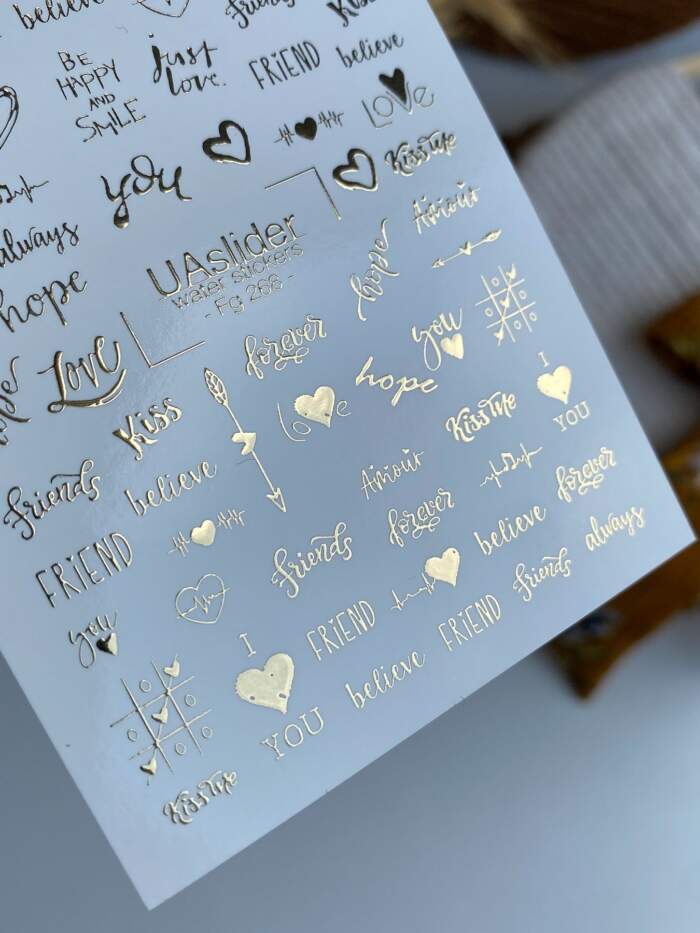 believe
friends
Kiss
BE
HAPPY
AND
SMILE
just
love.
FRIEND
believe
LOVE
you
Kiss Me
always
Amour
UAslider
water stickers
- Fg 268 -
hope
hope
forever
you
Love
Kiss
love
hope
Kiss Me
I
YOU
friends
believe
Amour
forever
forever
FRIEND
friends
believe
always
you
I
YOU
FRIEND
believe
FRIEND
friends
Kiss Me